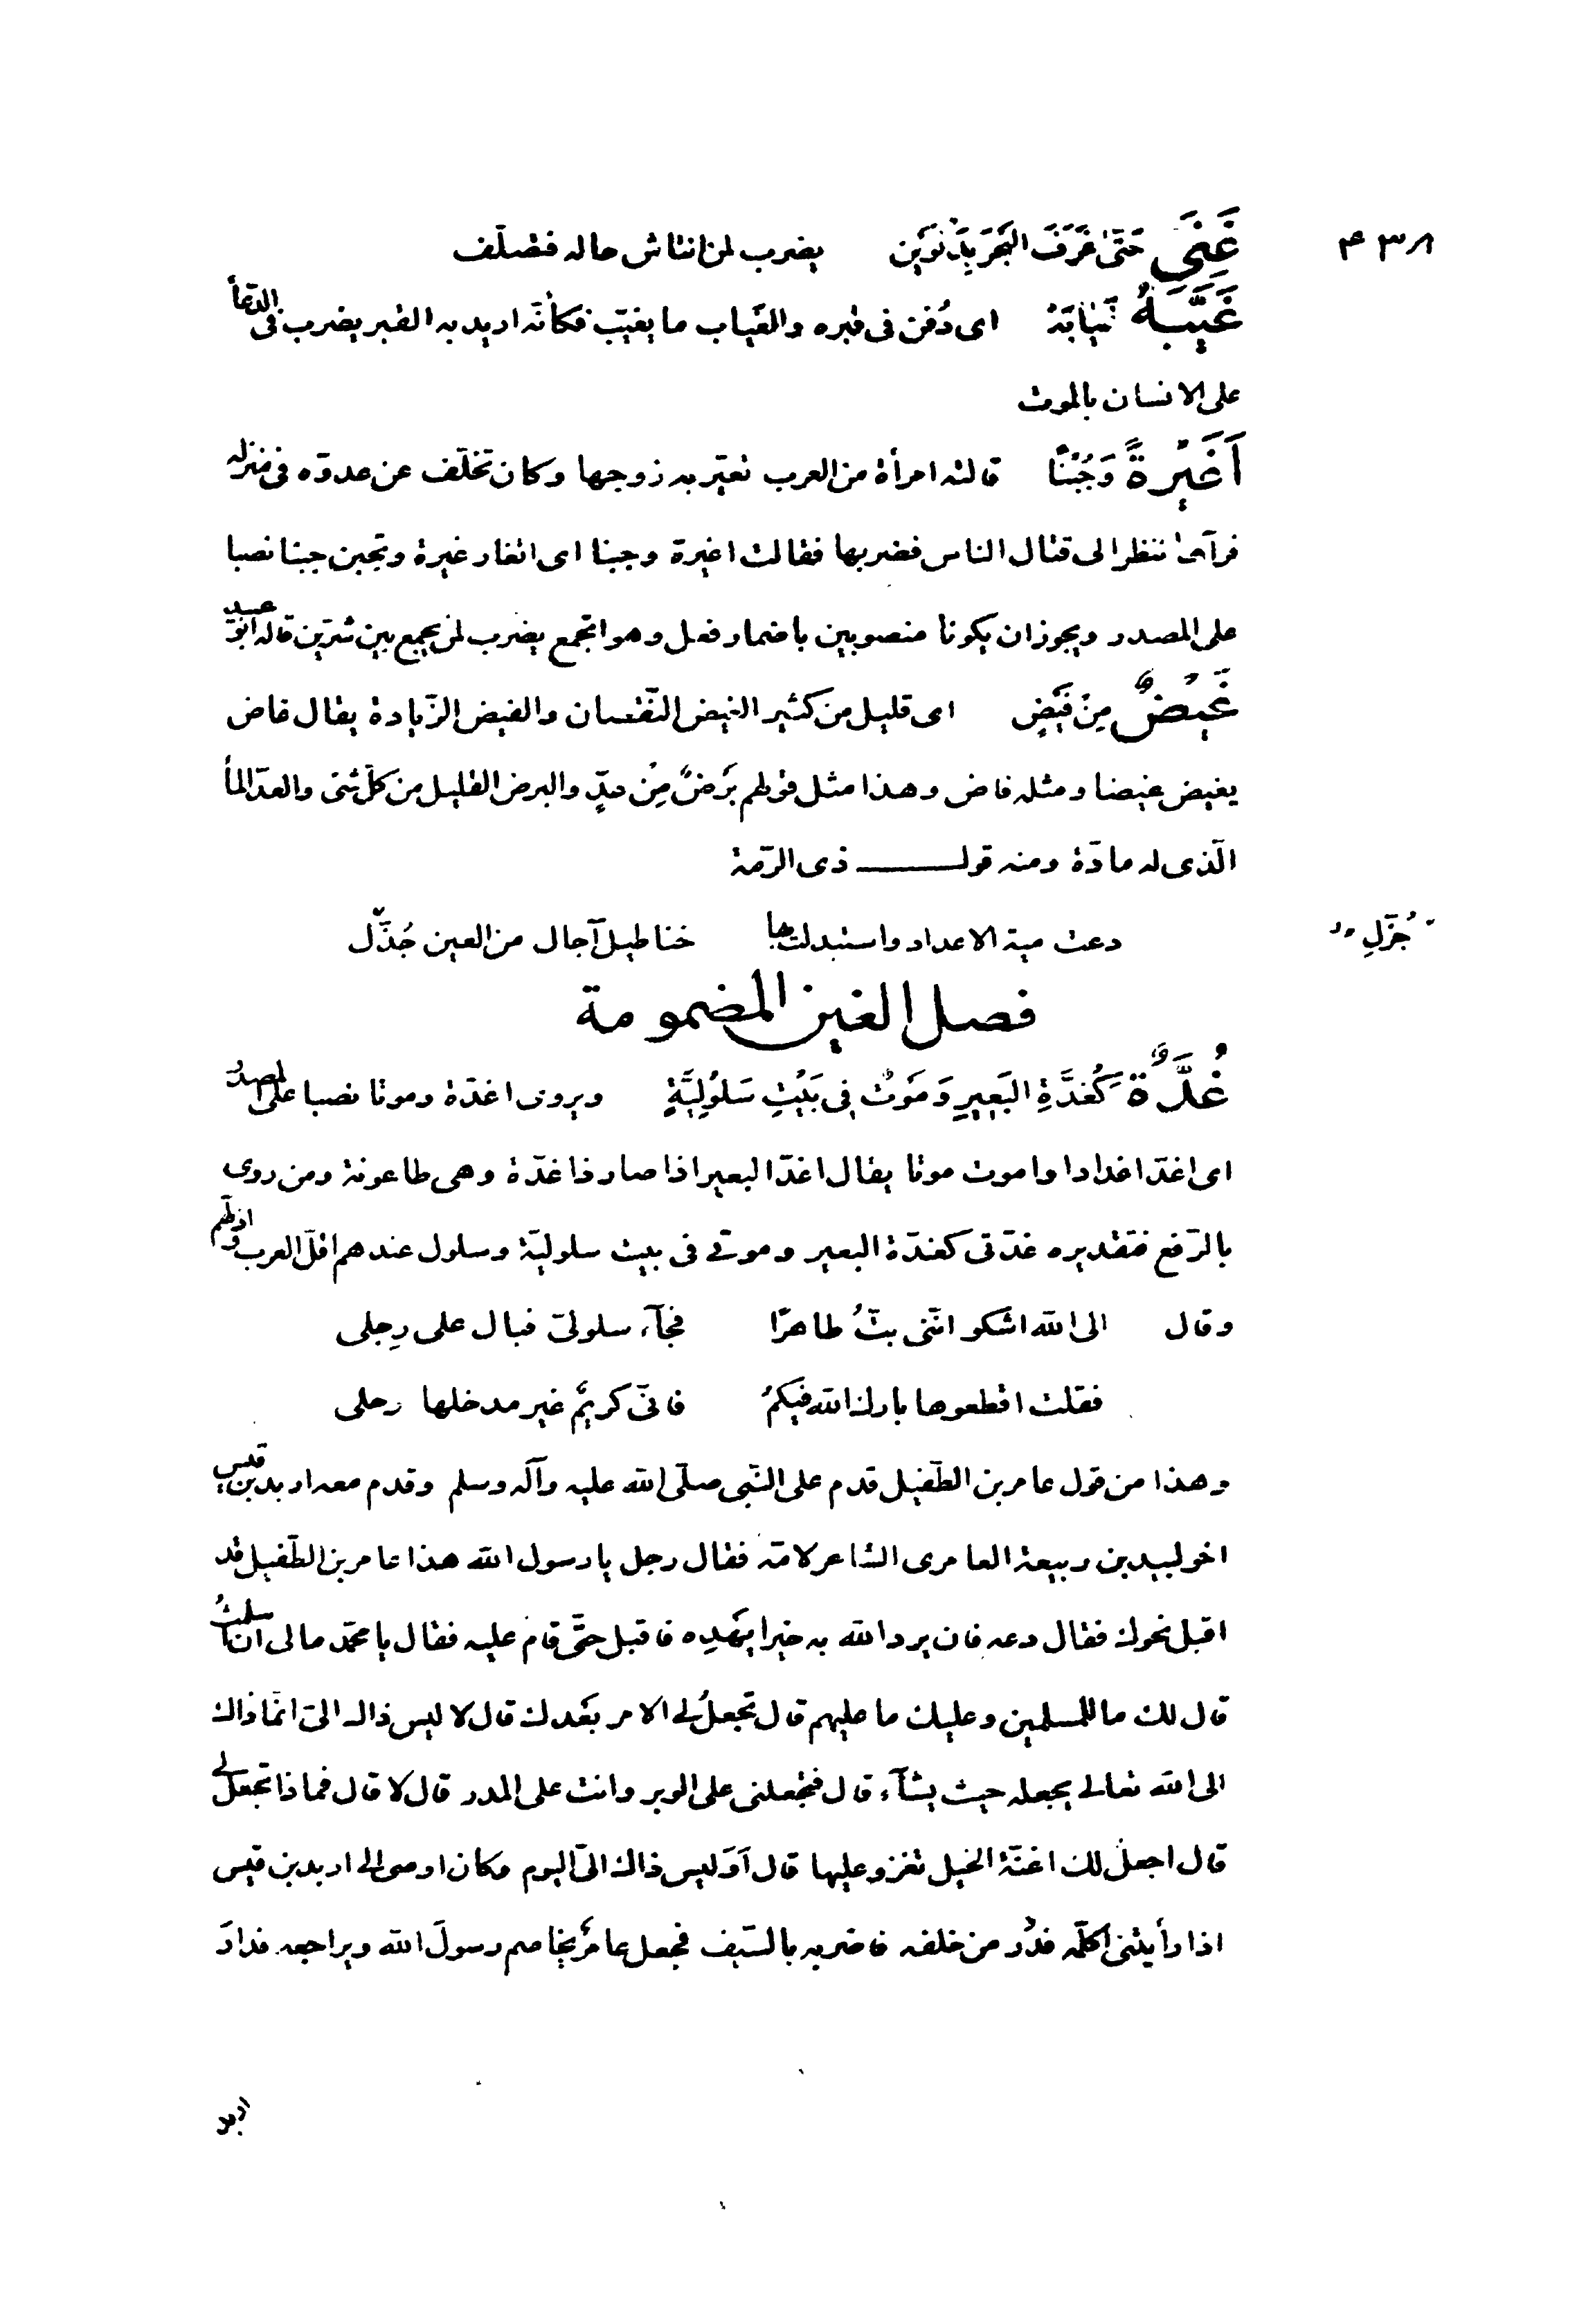 ٤٣٨
غَنِيَ حَتَّىٰ غَرَفَ البَحْرَ بِدَلْوَيْنِ يضرب لمن انتاش حاله فتصلّف
غَيَّبَهُ غَيَابَهُ اى دُفن فى قبره والغَياب ما يغيّب فكأنّه اريد به القبر يضرب فى الدّعأ
على الانسان بالموت
اَغَيْرَةً وَجُبْنًا قالته امرأة من العرب تعيّر به زوجها وكان تخلّف عن عدوّه فى منزله
فرآها تنظر الى قتال الناس فضربها فقالت اغيرة وجبنا اى اتغار غيرة وتجبن جبنا نصبا
على المصدر ويجوز ان يكونا منصوبين باضمار فعل وهو اتجمع يضرب لمن يجمع بين شرّين قاله ابو عبيد
غَيْضٌ مِنْ فَيْضٍ اى قليل من كثير الغيض النّقصان والفيض الزّيادة يقال غاض
يغيض غيضا ومثله فاض وهذا مثل قولهم بَرْضٌ مِنْ عِدٍّ والبرض القليل من كلّ شئ والعدّ المأ
الّذى له مادّة ومنه قول ذى الرّمة
دعت مية الاعداد واستبدلت بها خناطيل آجال من العين خُذَّل
جُزَّلِ
فصل الغين المضمومة
غُدَّةٌ كَغُدَّةِ البَعِيرِ وَمَوْتٌ فِى بَيْتِ سَلُولِيَّةٍ ويروى اغدّة وموتا نصبا على المصدر
اى اغدّ اغدادا واموت موتا يقال اغدّ البعير اذا صار ذا غدّة وهى طاعونة ومن روى
بالرّفع فتقديره غدّتى كغدّة البعير وموتى فى بيت سلوليّة وسلول عندهم اقلّ العرب واذلّهم
وقال الى الله اشكو انّنى بتُّ طاهرًا فجآء سلولىّ فبال على رِجلى
فقلت اقطعوها بارك الله فيكمُ فانّى كريمٌ غير مدخلها رحلى
وهذا من قول عامر بن الطّفيل قدم على النّبى صلّى الله عليه وآله وسلم وقدم معه اربد بن قيس
اخو لبيد بن ربيعة العامرى الشاعر لامّه فقال رجل يا رسول الله هذا عامر بن الطّفيل قد
اقبل نحوك فقال دعه فان يرد الله به خيرا يَهْدِه فاقبل حتّى قام عليه فقال يا محمّد مالى ان اسلمتُ
قال لك ما للمسلمين وعليك ما عليهم قال تجعلُ لى الامر بَعْدك قال لا ليس ذاك الىّ انّما ذاك
الى الله تعالى يجعله حيث يشآء قال فتجعلنى على الوبر وانت على المدر قال لا قال فماذا تجعل لى
قال اجعل لك اعنّة الخيل تغزو عليها قال اَوَليس ذاك الىّ اليوم وكان اوصى الى اربد بن قيس
اذا رأيتنى اكلّمه فدُر من خلفه فاضربه بالسّيف فجعل عامرٌ يخاصم رسولَ الله ويراجعه فدارَ
اربد